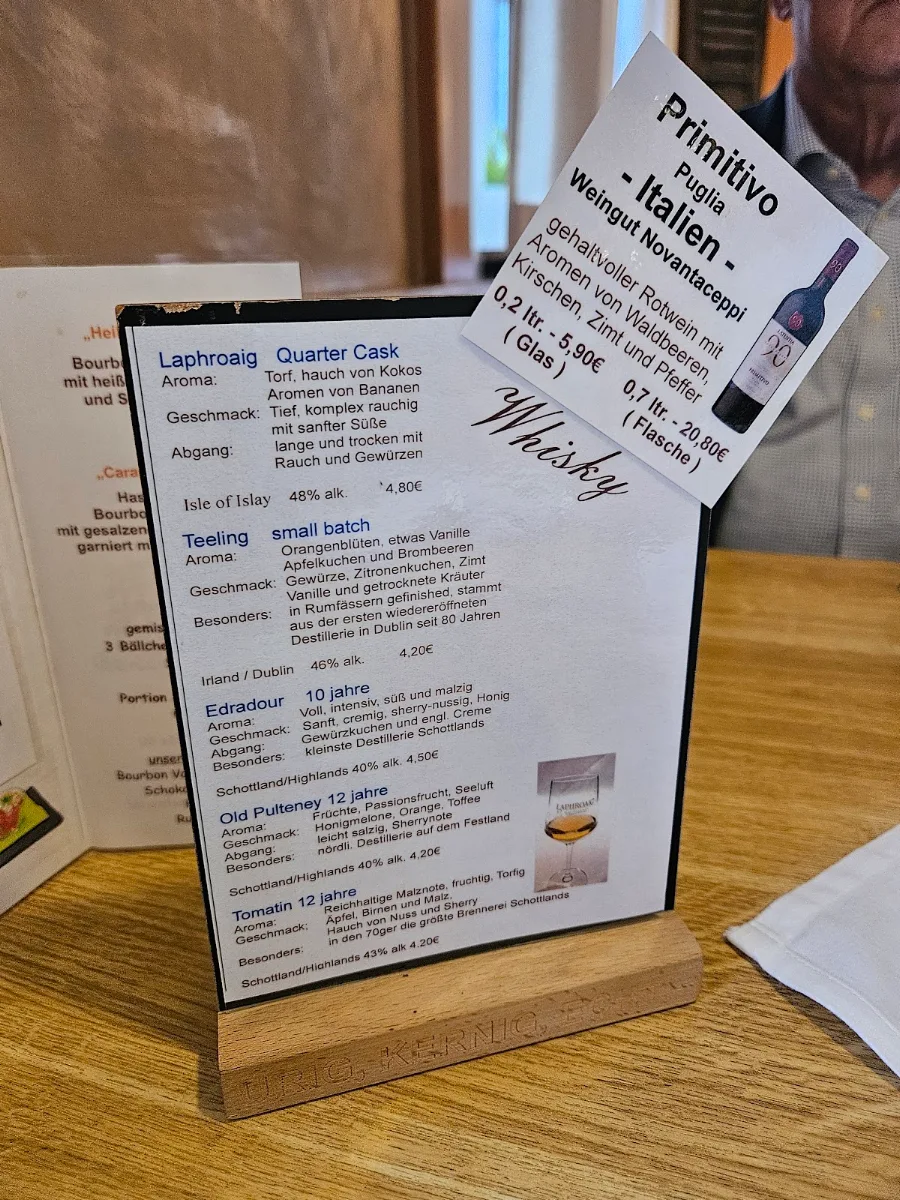 Primitivo
Puglia
- Italien -
Weingut Novantaceppi
gehaltvoller Rotwein mit
Aromen von Waldbeeren,
Kirschen, Zimt und Pfeffer
0,2 ltr. - 5,90€
( Glas )
0,7 ltr. - 20,80€
( Flasche )
90
Whisky
Laphroaig Quarter Cask
Aroma: Torf, hauch von Kokos
Aromen von Bananen
Geschmack: Tief, komplex rauchig
mit sanfter Süße
Abgang: lange und trocken mit
Rauch und Gewürzen
Isle of Islay 48% alk. 4,80€
Teeling small batch
Aroma: Orangenblüten, etwas Vanille
Apfelkuchen und Brombeeren
Geschmack: Gewürze, Zitronenkuchen, Zimt
Vanille und getrocknete Kräuter
Besonders: in Rumfässern gefinished, stammt
aus der ersten wiedereröffneten
Destillerie in Dublin seit 80 Jahren
Irland / Dublin 46% alk. 4,20€
Edradour 10 jahre
Aroma: Voll, intensiv, süß und malzig
Geschmack: Sanft, cremig, sherry-nussig, Honig
Abgang: Gewürzkuchen und engl. Creme
Besonders: kleinste Destillerie Schottlands
Schottland/Highlands 40% alk. 4,50€
Old Pulteney 12 jahre
Aroma: Früchte, Passionsfrucht, Seeluft
Geschmack: Honigmelone, Orange, Toffee
Abgang: leicht salzig, Sherrynote
Besonders: nördli. Destillerie auf dem Festland
Schottland/Highlands 40% alk. 4.20€
Tomatin 12 jahre
Aroma: Reichhaltige Malznote, fruchtig, Torfig
Geschmack: Äpfel, Birnen und Malz.
Hauch von Nuss und Sherry
Besonders: in den 70ger die größte Brennerei Schottlands
Schottland/Highlands 43% alk 4.20€
LAPHROAIG
URIG, KERNIG,
mit heiß
und S
mit gesalzen
garniert m
gemis
3 Bällche
Portion
unser
Bourbon